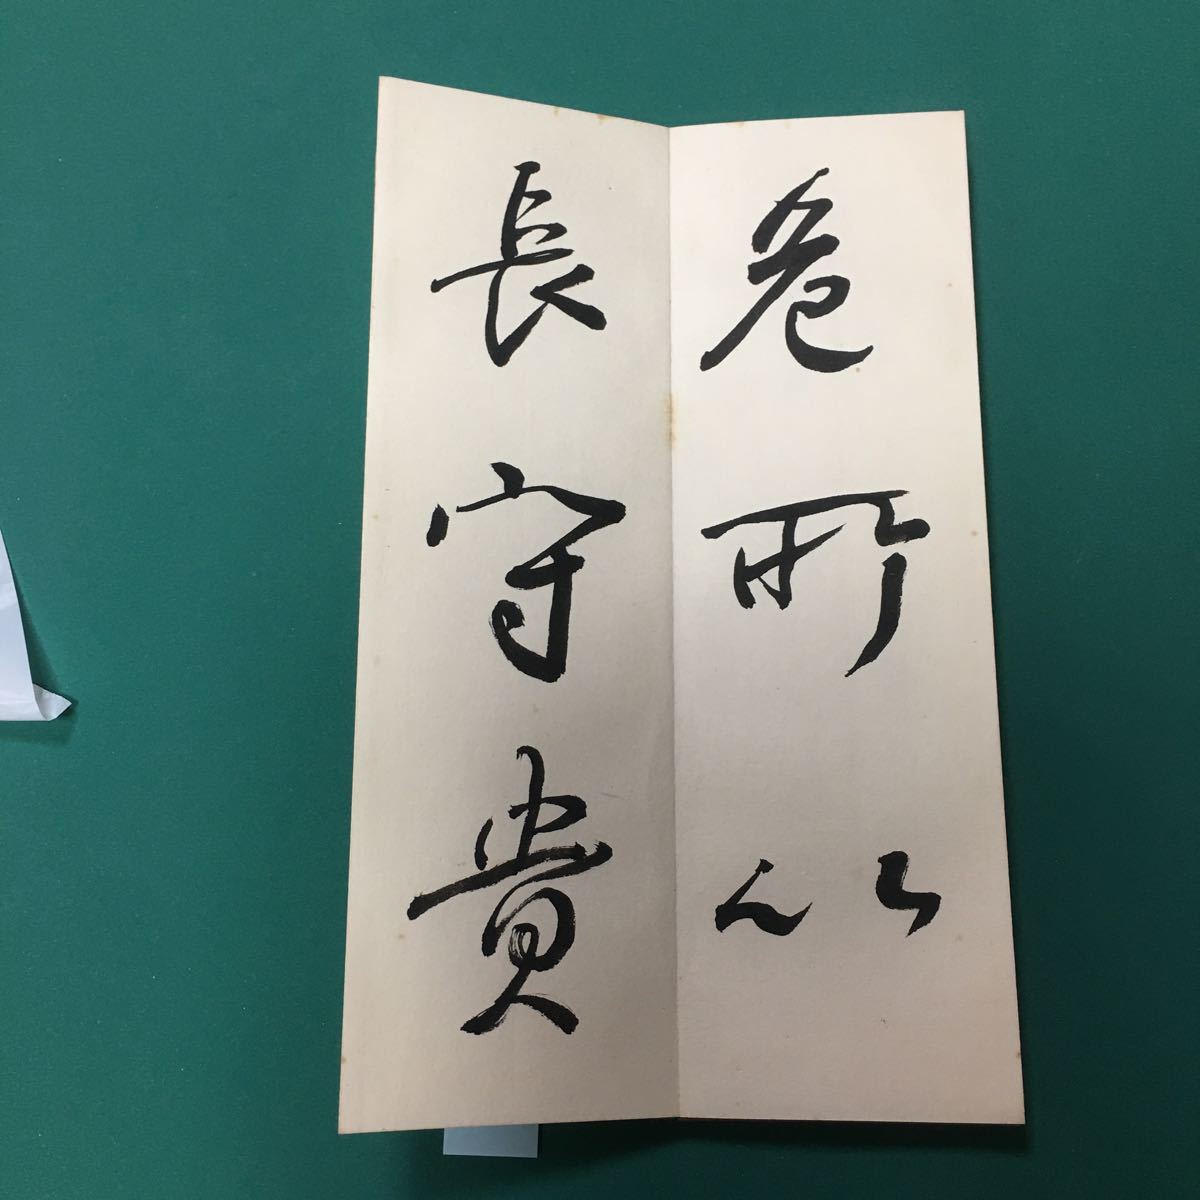 危所以
長守貴